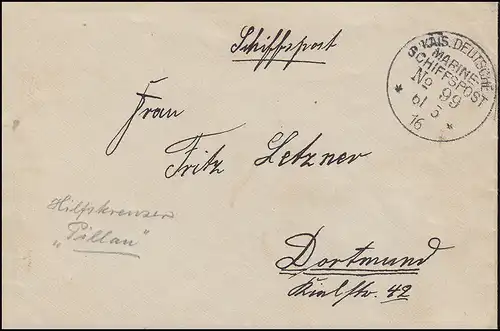 Schiffspost
KAIS. DEUTSCHE
MARINE-
SCHIFFSPOST
No 99
6/ 5
16
Frau
Fritz Letzner
Hilfskreuzer
"Pillau"
Dortmund
Kielstr. 42